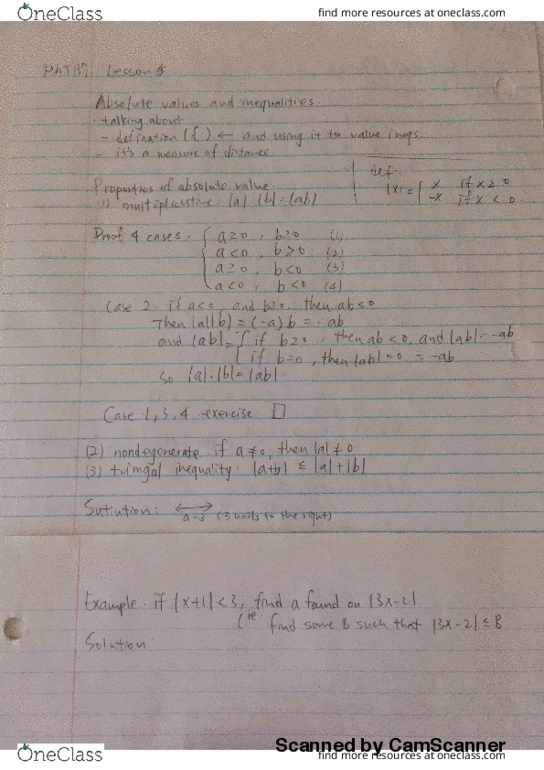 OneClass
find more resources at oneclass.com
MAT137 Lesson 5
Absolute values and inequalities
· talking about
- defination ({ ) ← and using it to value ineqs.
- it's a measure of distance
def.
|x| = { x if x ≥ 0
-x if x < 0
Properties of absolute value
(1) multiplicative |a| |b| = |ab|
Proof 4 cases. { a≥0, b≥0 (1)
a<0, b≥0 (2)
a≥0, b<0 (3)
a<0, b<0 (4)
Case 2. if a<0 and b≥0, then ab≤0
Then |a||b| = (-a) b = -ab
and |ab| = { if b≥0, then ab<0, and |ab| = -ab
if b=0, then |ab|=0 = -ab
So |a|·|b| = |ab|
Case 1,3,4 exercise □
(2) nondegenerate if a≠0, then |a|≠0
(3) trimgal inequality. |a+b| ≤ |a|+|b|
Sutiution: ⟷
a-3 (3 units to the right)
Example. if |x+1|<3, find a found on |3x-2|
(ie. find some B such that |3x-2| ≤ B
Solution
Scanned by CamScanner
OneClass
find more resources at oneclass.com